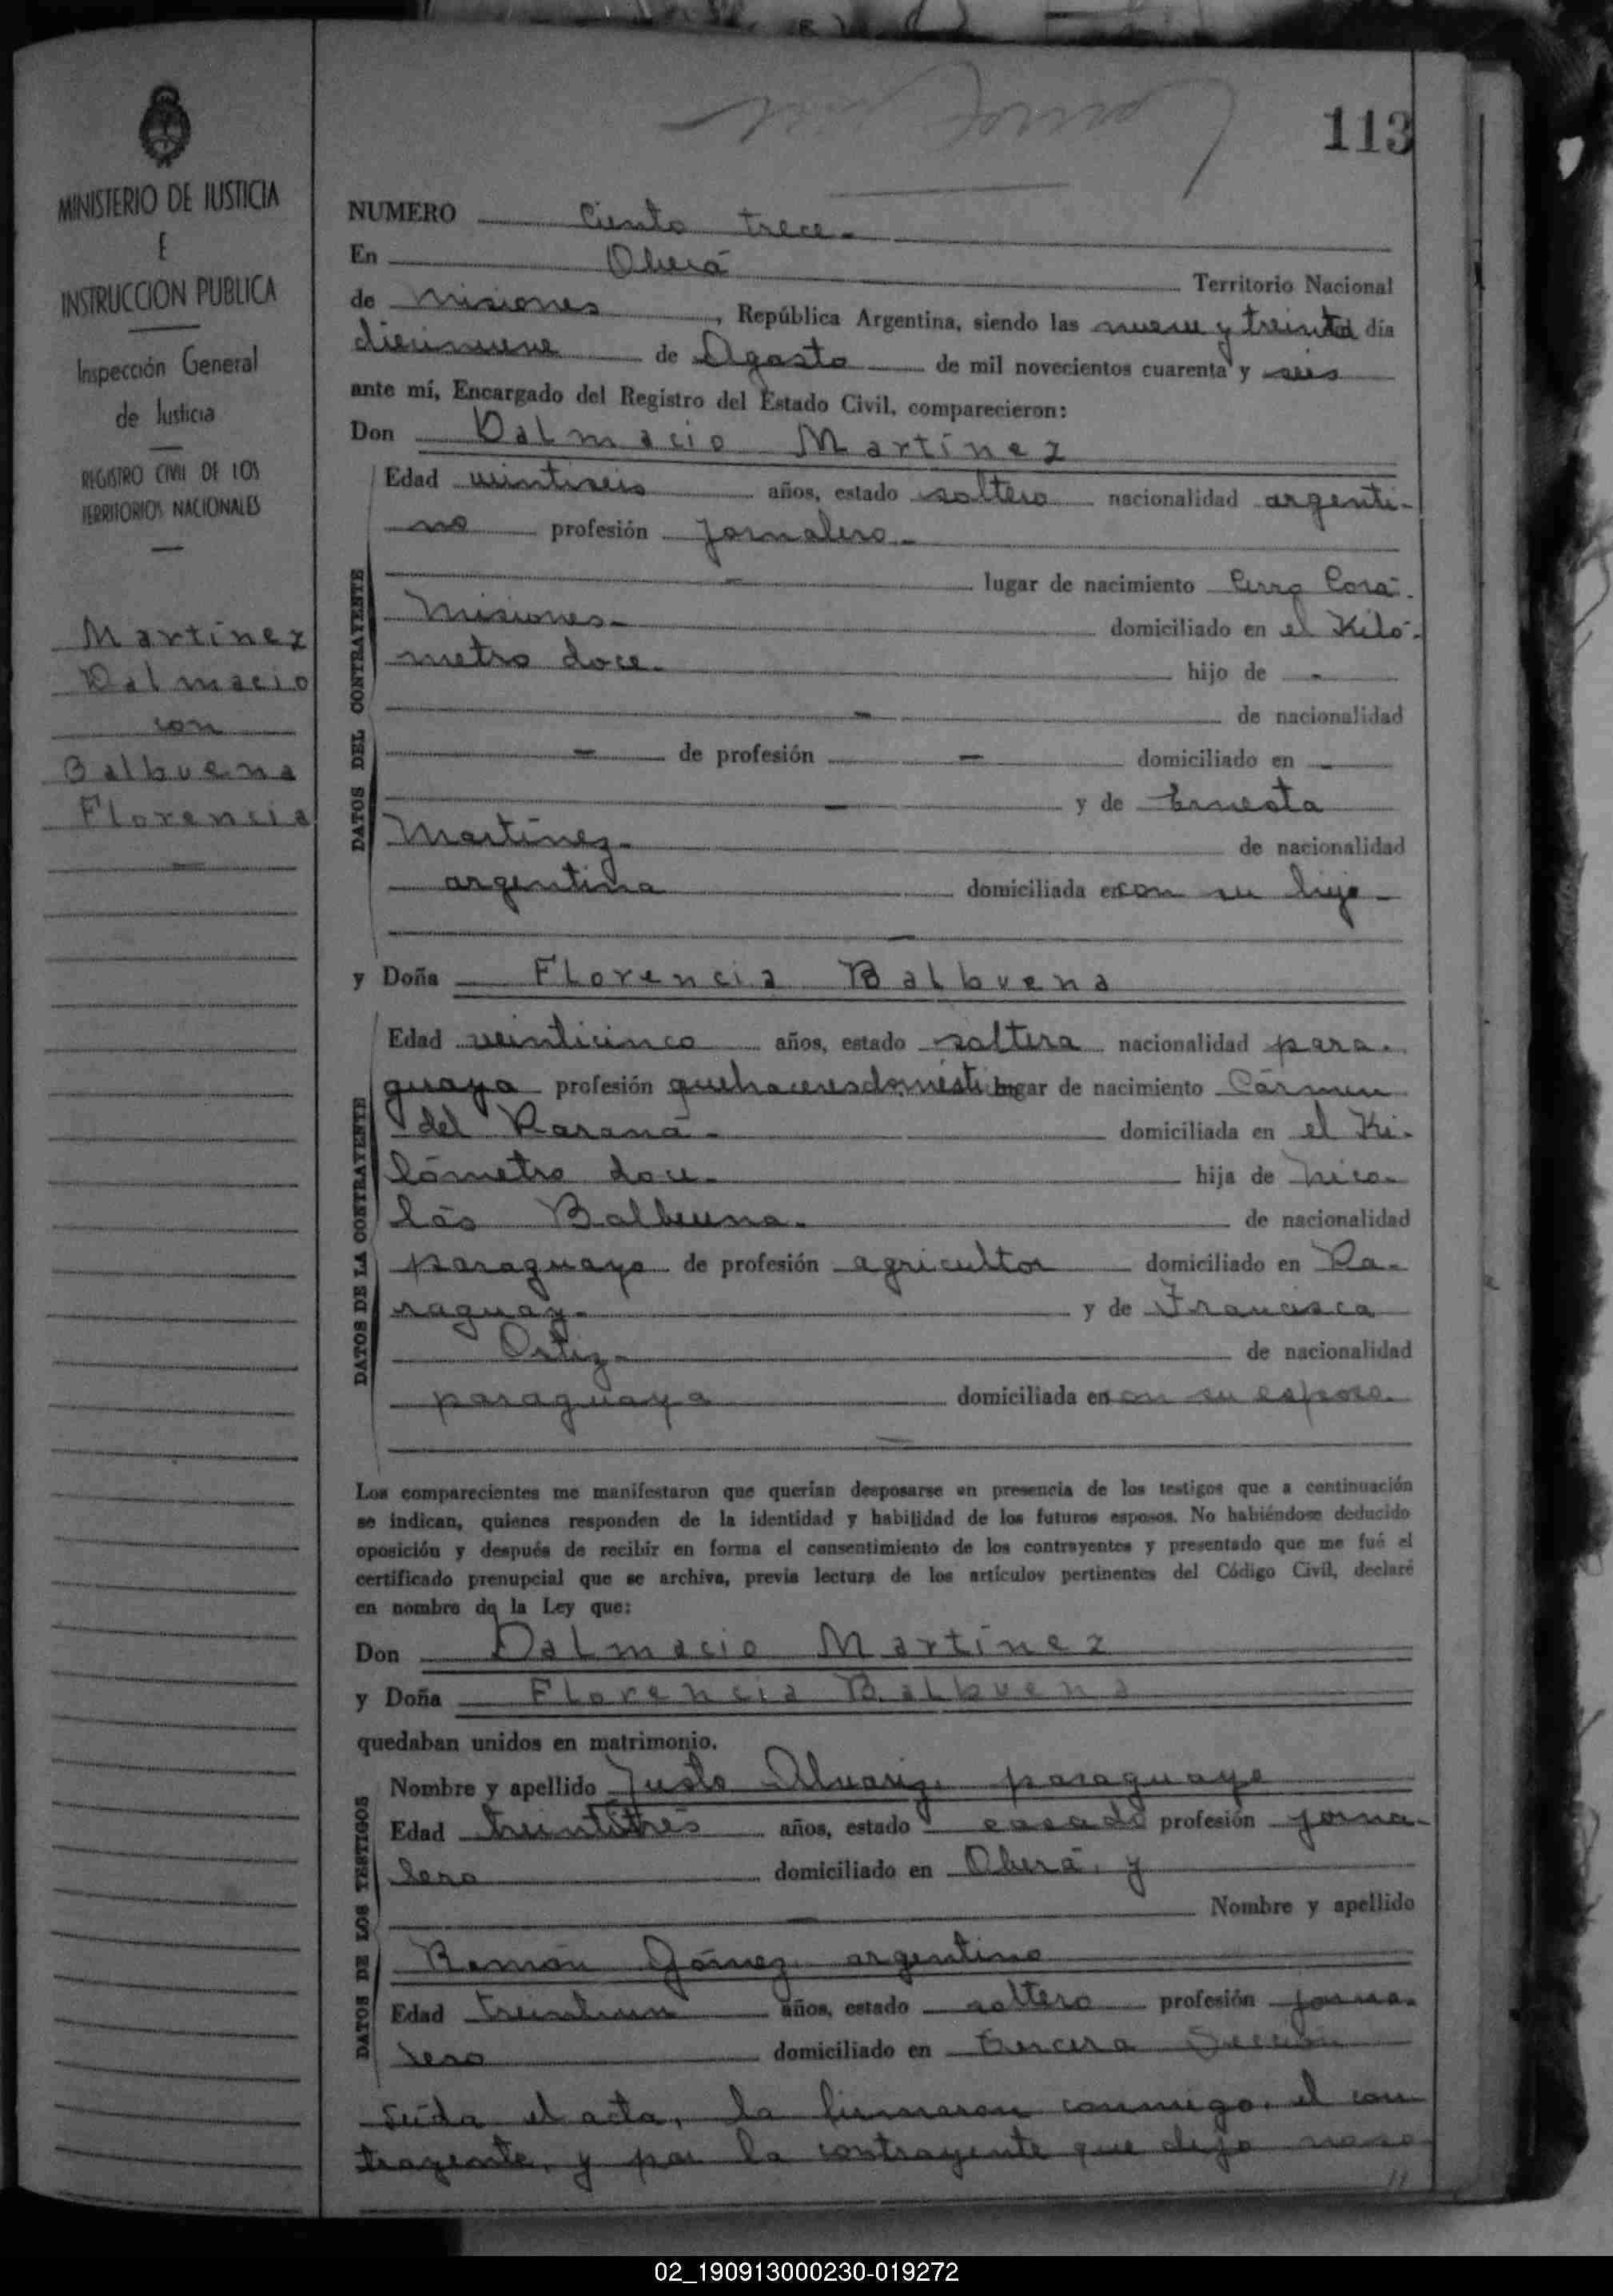 113
MINISTERIO DE JUSTICIA
E
INSTRUCCION PUBLICA
Inspección General
de Justicia
REGISTRO CIVIL DE LOS
TERRITORIOS NACIONALES
Martínez
Dalmacio
con
Balbuena
Florencia
NUMERO Ciento trece.-
En Oberá Territorio Nacional
de Misiones, República Argentina, siendo las nueve y treinta del día
diecinueve de Agosto de mil novecientos cuarenta y seis
ante mí, Encargado del Registro del Estado Civil, comparecieron:
Don Dalmacio Martínez
DATOS DEL CONTRAYENTE
Edad veintiseis años, estado soltero nacionalidad argenti-
no profesión jornalero.-
- lugar de nacimiento Cerro Corá.
Misiones.- domiciliado en el Kiló-
metro doce.- hijo de -
- de nacionalidad
- de profesión - domiciliado en -
- y de Ernesta
Martínez.- de nacionalidad
argentina domiciliada en con su hijo-
-
y Doña Florencia Balbuena
DATOS DE LA CONTRAYENTE
Edad veinticinco años, estado soltera nacionalidad para-
guaya profesión quehaceres domésticos lugar de nacimiento Cármen
del Paraná.- domiciliada en el Ki-
lómetro doce.- hija de Nico-
lás Balbuena.- de nacionalidad
paraguayo de profesión agricultor domiciliado en Pa-
raguay.- y de Francisca
Ortiz.- de nacionalidad
paraguaya domiciliada en con su esposo.
-
Los comparecientes me manifestaron que querían desposarse en presencia de los testigos que a continuación
se indican, quienes responden de la identidad y habilidad de los futuros esposos. No habiéndose deducido
oposición y después de recibir en forma el consentimiento de los contrayentes y presentado que me fué el
certificado prenupcial que se archiva, previa lectura de los artículos pertinentes del Código Civil, declaré
en nombre de la Ley que:
Don Dalmacio Martínez
y Doña Florencia Balbuena
quedaban unidos en matrimonio.
DATOS DE LOS TESTIGOS
Nombre y apellido Justo Alvarez, paraguayo
Edad treintitrés años, estado casado profesión jorna-
lero domiciliado en Oberá, y
- Nombre y apellido
Ramón Gómez, argentino
Edad treintiun años, estado soltero profesión jorna-
lero domiciliado en tercera Sección
Leída el acta, la firmaron conmigo, el con
trayente, y por la contrayente que dijo no sa
02_190913000230-019272